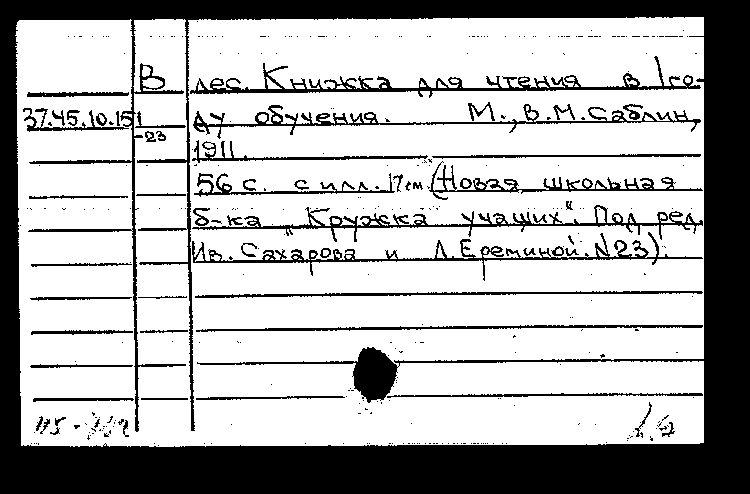 В лес. Книжка для чтения в I го-
37.45.10.151 ду обучения. М., В.М.Саблин,
-23 1911.
56 с. с илл. 17см (Новая школьная
б-ка „Кружка учащих". Под ред.
Ив. Сахарова и Л. Ереминой. N23).